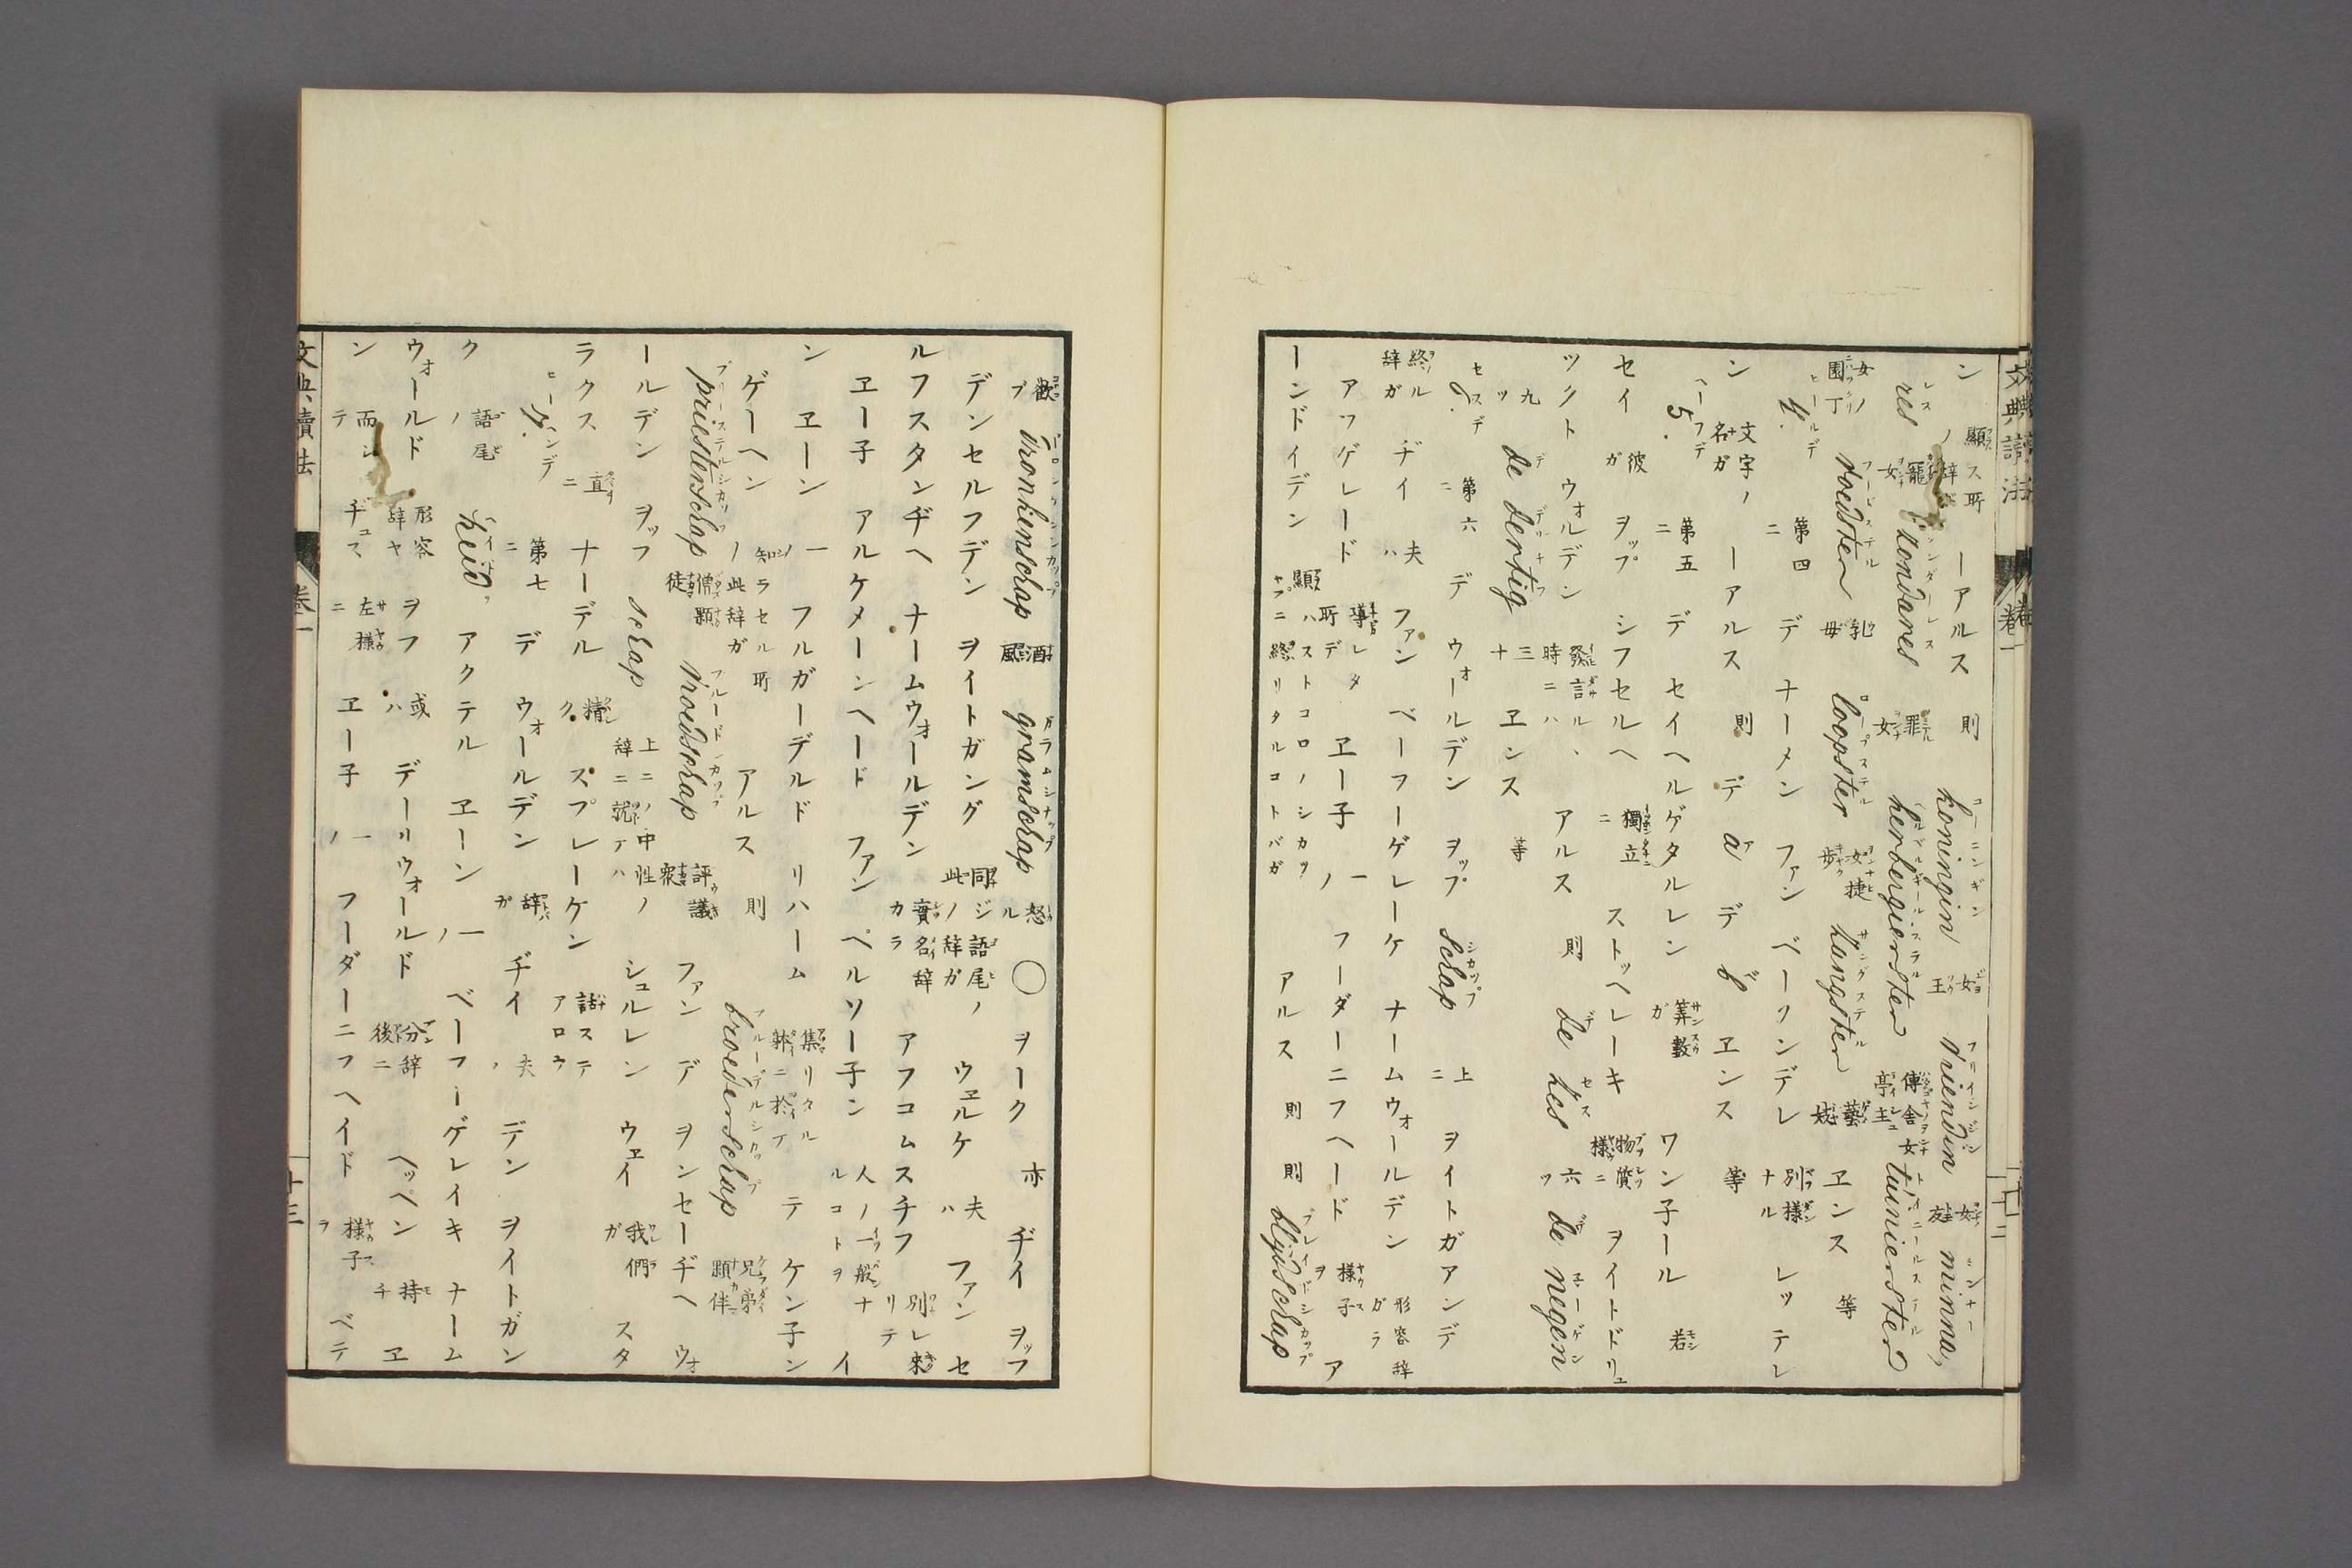 ン 顕ス所ノ辞 ーアルス 則 koningin 女王 vriendin 女友 minna,
res 寵女 zondares 罪女 herbergierster 傳舎亭主女 tuinierster
女ノ園丁 voedster 乳母 loopster 女捷歩 zangster 藝妓 ヱンス 等
4. 第四ニ デ ナーメン ファン ベーソンデレ 別様ナル レッテレ
ン 文字ノ名ガ ーアルス 則 デ a デ b ヱンス 等
5. 第五ニ デ セイヘルゲタルレン 筭数ガ ワン子ール 若
セイ 彼ガ ヲップ シフセルヘ 獨立ニ ストッヘレーキ 物質様ニ ヲイトドリュ
ツクト ウォルデン 發言ル時ニハ、 アルス 則 de zes 六ッ de negen
九ッ de dertig 三十 ヱンス 等
6. 第六ニ デ ウォールデン ヲップ schap 上ニ ヲイトガアンデ
終ル辞ガ ヂイ 夫ハ ファン ベーフーゲレーケ ナームウォールデン 形容辞ガラ
アフゲレード 導レタ所デ ヱー子 一ノ フーダーニフヘード 様子ヲ ア
ーンドイデン 顕ハストコロノシカップニ終リタルコトバガ アルス 則 則 blijdschap
歓プ vronkenschap 酒風 gramschap 怒ル 〇 ヲーク 亦 ヂイ ヲッフ
デンセルフデン ヲイトガング 同ジ語尾ノ此ノ辞ガ ウェルケ 夫ハ ファン セ
ルフスタンヂヘ ナームウォールデン 實名辞カラ アフコムスチフ 別レ來リテ
ヱー子 アルケメーンヘード ファン ペルソー子ン 人ノ一般ナルコトヲ イ
ン ヱーン 一ノ フルガーデルド リハーム 集リタル躰ニ於イテ テ ケン子ン
ゲーヘン 知ラセル所ノ此辞ガ アルス 則 broederschap 兄弟伴顆
priesterschap 僧徒顆 vroedschap 評議衆 ファン デ ヲンセーヂヘ ウォ
ールデン ヲッフ schap 上ニノ中性ノ辞ニ就テハ シュルレン ウェイ 我們ガ スタ
ラクス 直ニ ナーデル 精ク スプレーケン 話ステアロウ
7. 第七ニ デ ウォールデン 辞ガ ヂイ 夫ノ デン ヲイトガン
ク 語尾ノ heid, アクテル ヱーン 一ノ ベーフーゲレイキ ナーム
ウォールド 形容辞ヤ ヲフ 或ハ デールウォールド 分辞後ニ ヘッペン 持チ ヱ
ン 而シテ ヂュス 左様ニ ヱー子 一ノ フーダーニフヘイド 様子ヲ ベテ
文典讀法 卷一 十二
文典讀法 卷一 十三